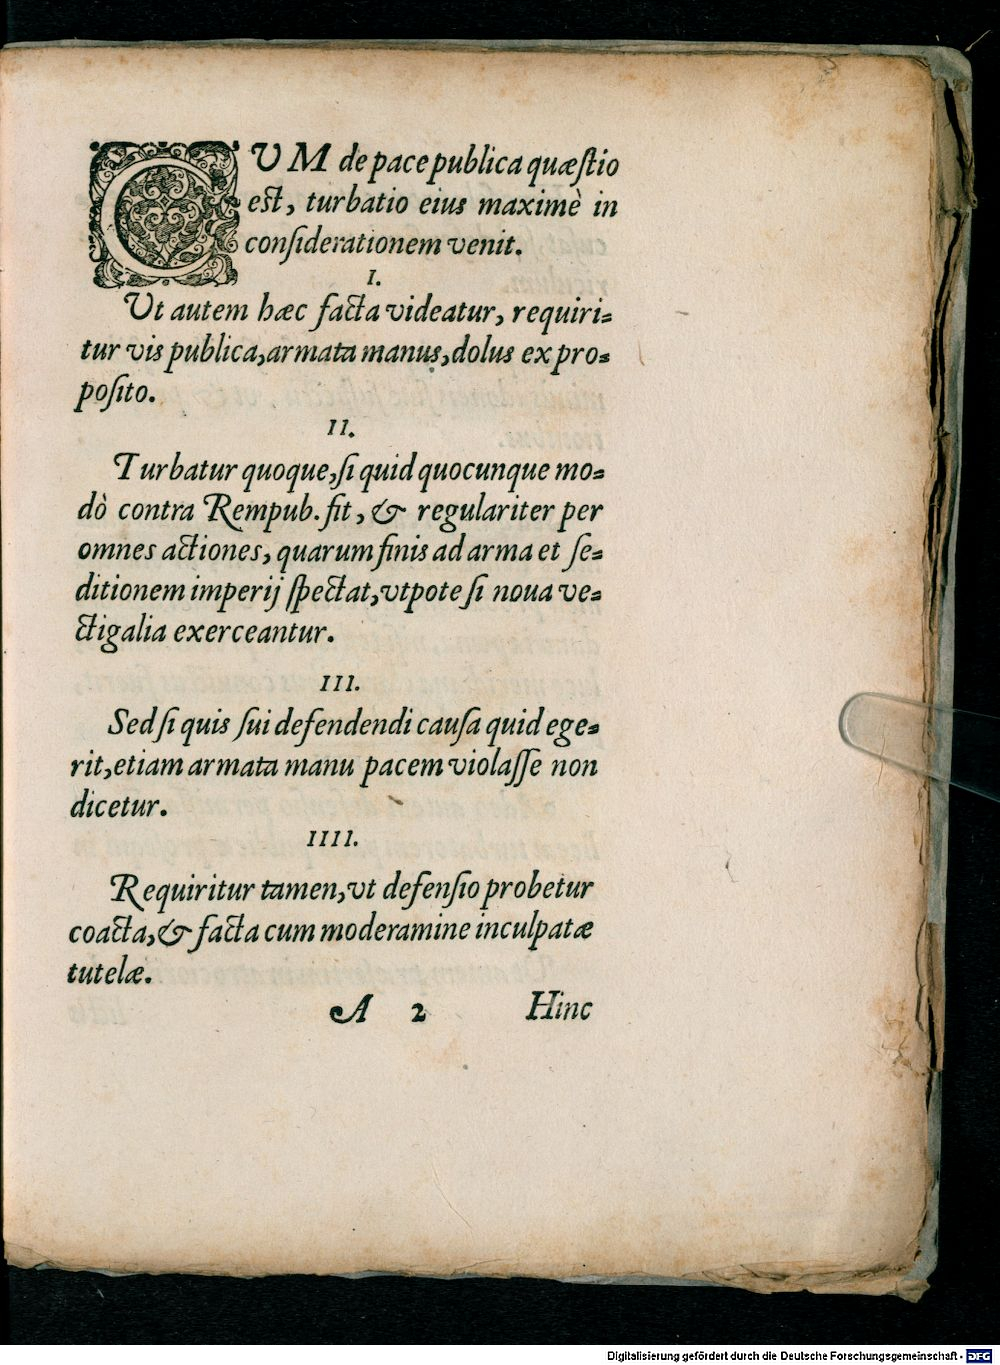 CVM de pace publica quæſtio
est, turbatio eius maximè in
conſiderationem venit.
I.
Vt autem hæc facta videatur, requiri-
tur vis publica, armata manus, dolus ex pro-
poſito.
II.
Turbatur quoque, ſi quid quocunque mo-
dò contra Rempub. fit, & regulariter per
omnes actiones, quarum finis ad arma et ſe-
ditionem imperij ſpectat, vtpote ſi noua ve-
ctigalia exerceantur.
III.
Sed ſi quis ſui defendendi cauſa quid ege-
rit, etiam armata manu pacem violaſſe non
dicetur.
IIII.
Requiritur tamen, vt defenſio probetur
coacta, & facta cum moderamine inculpatæ
tutelæ.
A 2 Hinc
Digitalisierung gefördert durch die Deutsche Forschungsgemeinschaft - DFG